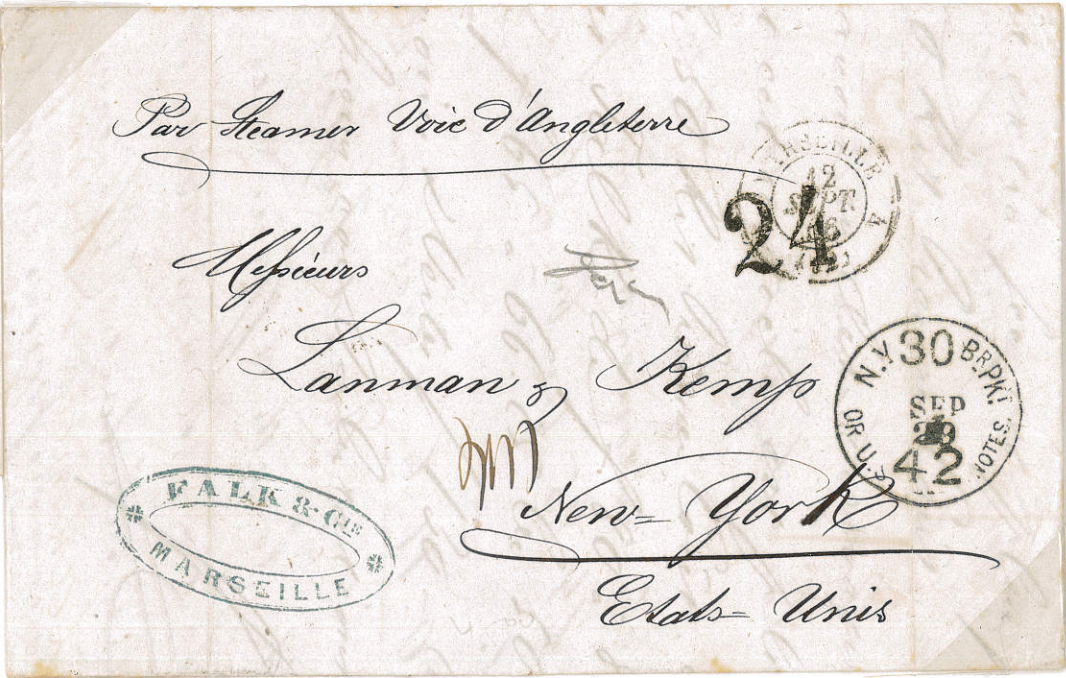 Par Steamer Voie d'Angleterre
MARSEILLE
12
SEPT.
24
Messieurs
Lanman & Kemp
N.Y. 30 BR. PKT.
SEP
28
42
OR U.S. NOTES.
New=York
FALK & CIE
MARSEILLE
Etats=Unis